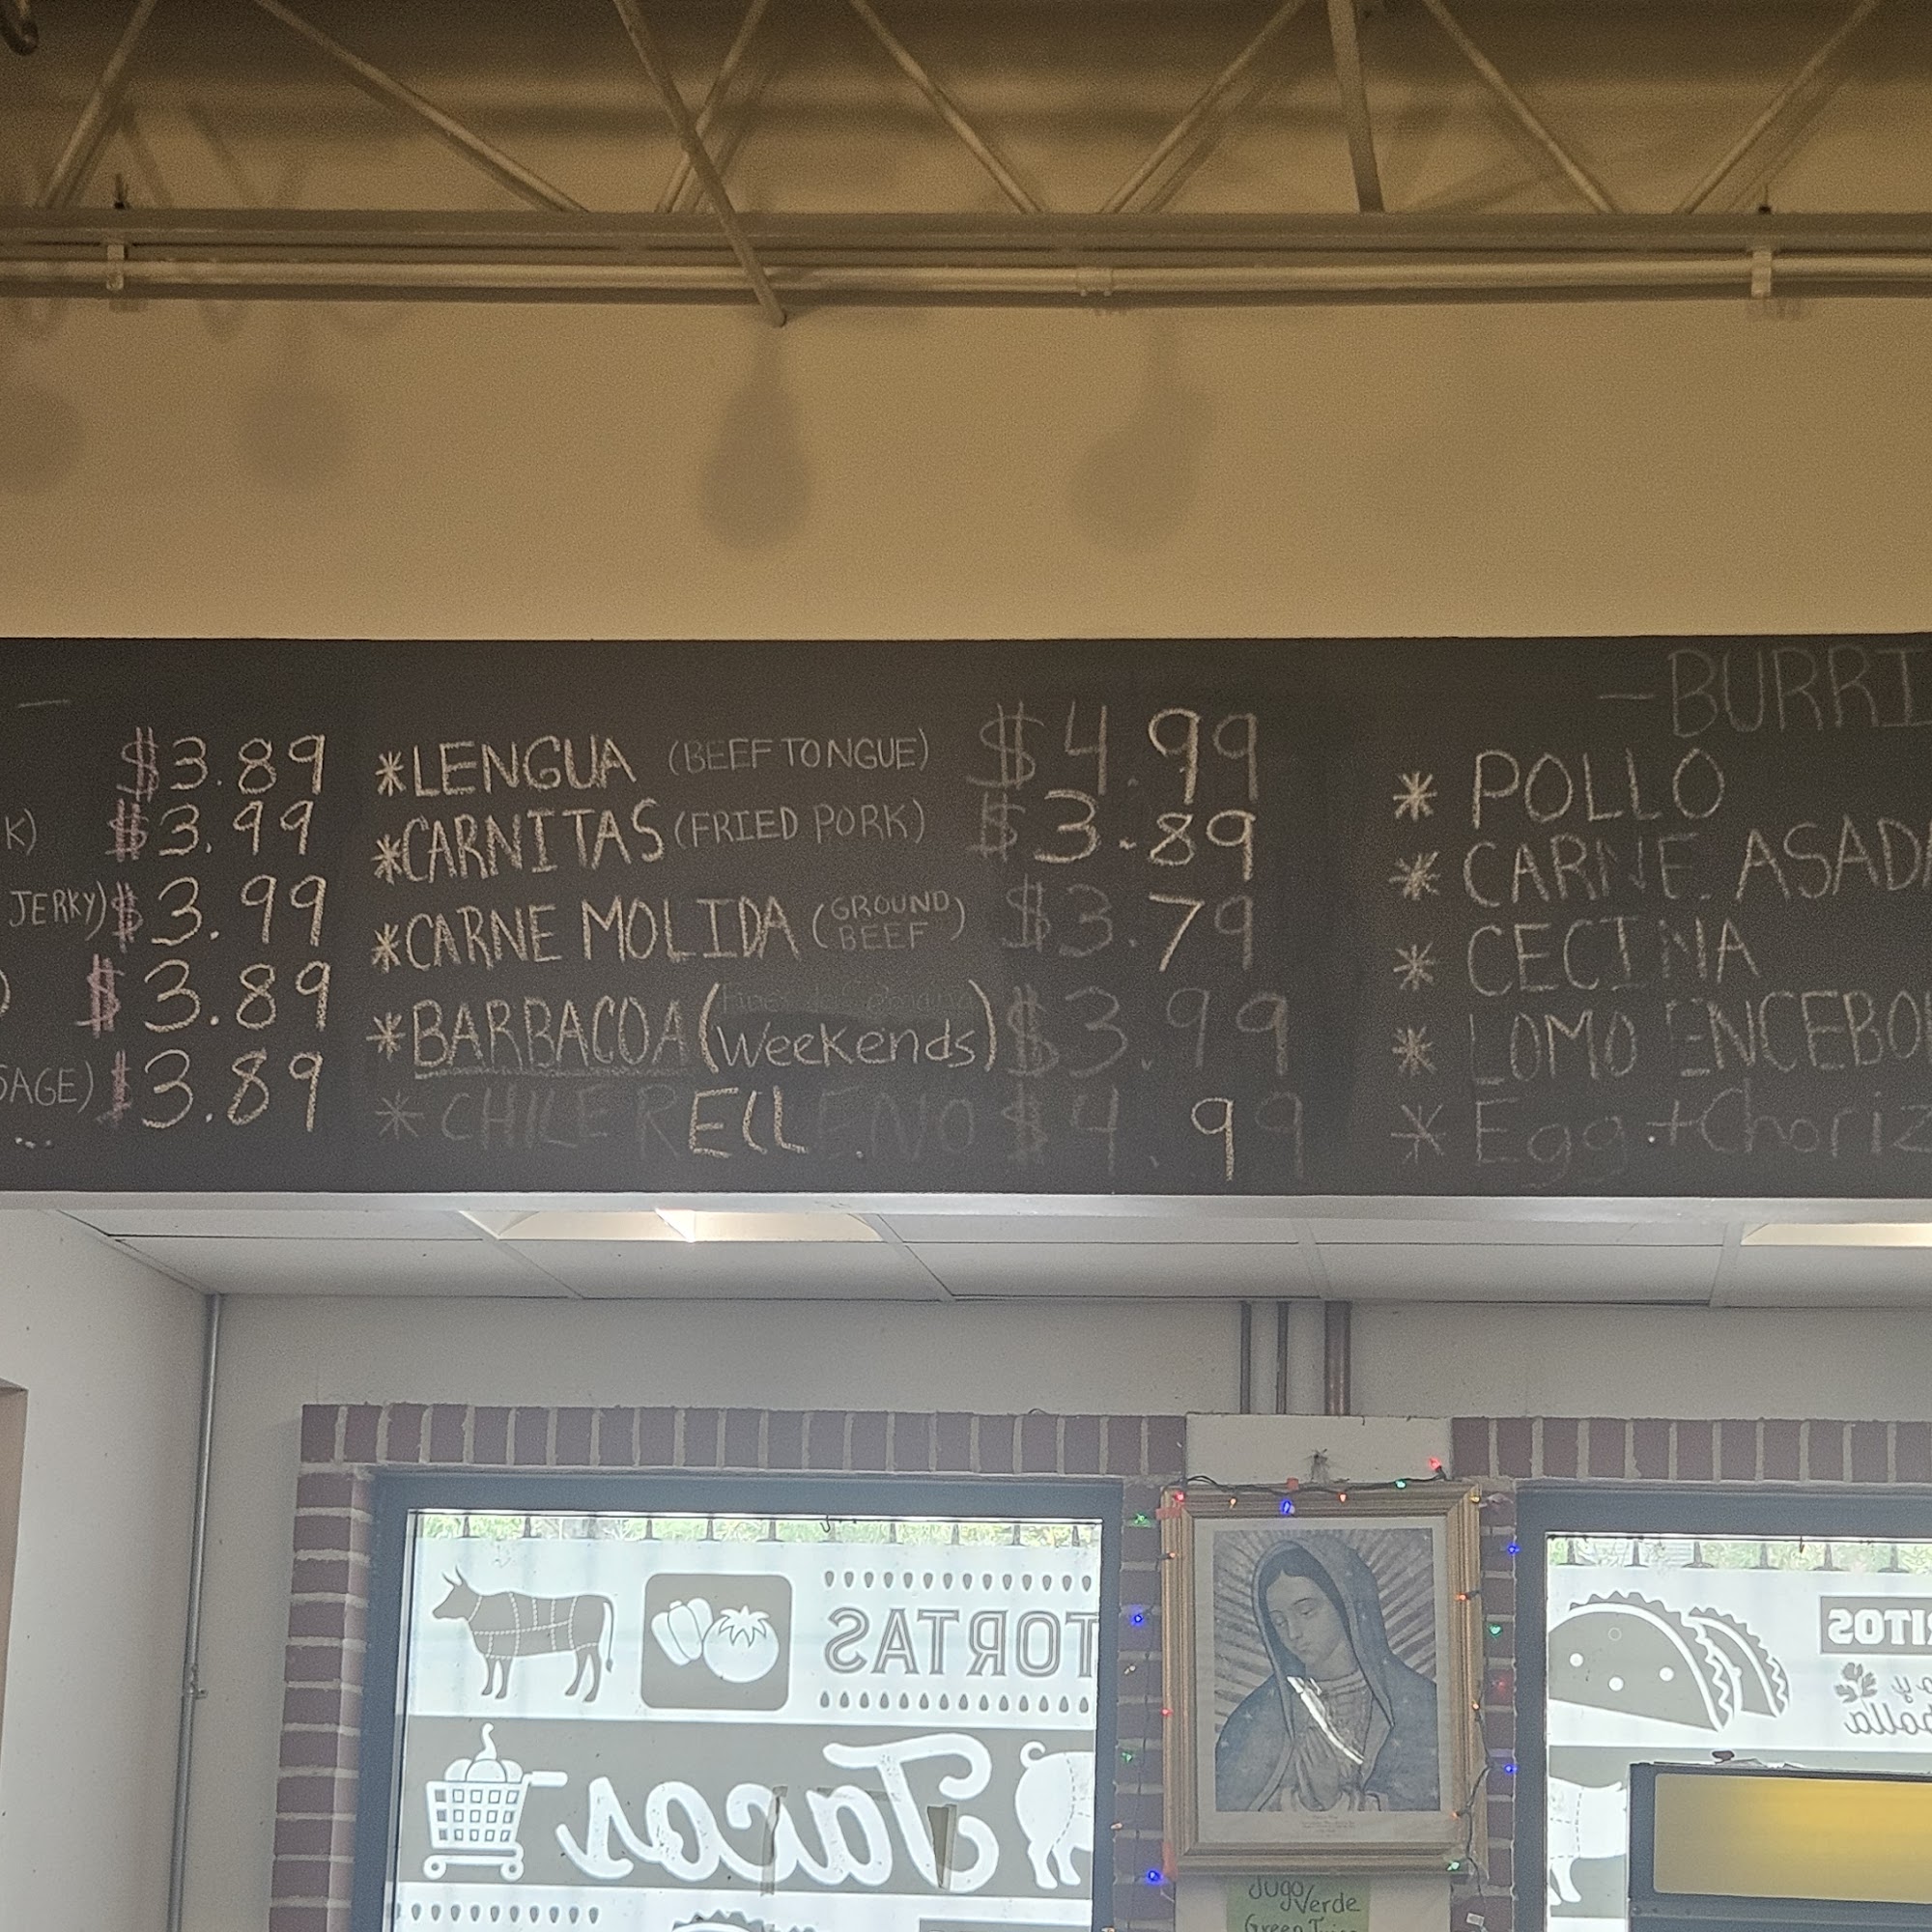 $3.89
K) $3.99
JERKY) $3.99
) $3.89
SAGE) $3.89
*LENGUA (BEEF TONGUE) $4.99
*CARNITAS (FRIED PORK) $3.89
*CARNE MOLIDA (GROUND BEEF) $3.79
*BARBACOA (Weekends) $3.99
* CHILE RELLENO $4.99
-BURRI
* POLLO
* CARNE ASADA
* CECINA
* LOMO ENCEBO
* Egg + Choriz
TORTAS
Tacos
ITOS
o y
bolla
Jugo Verde
Green Juice